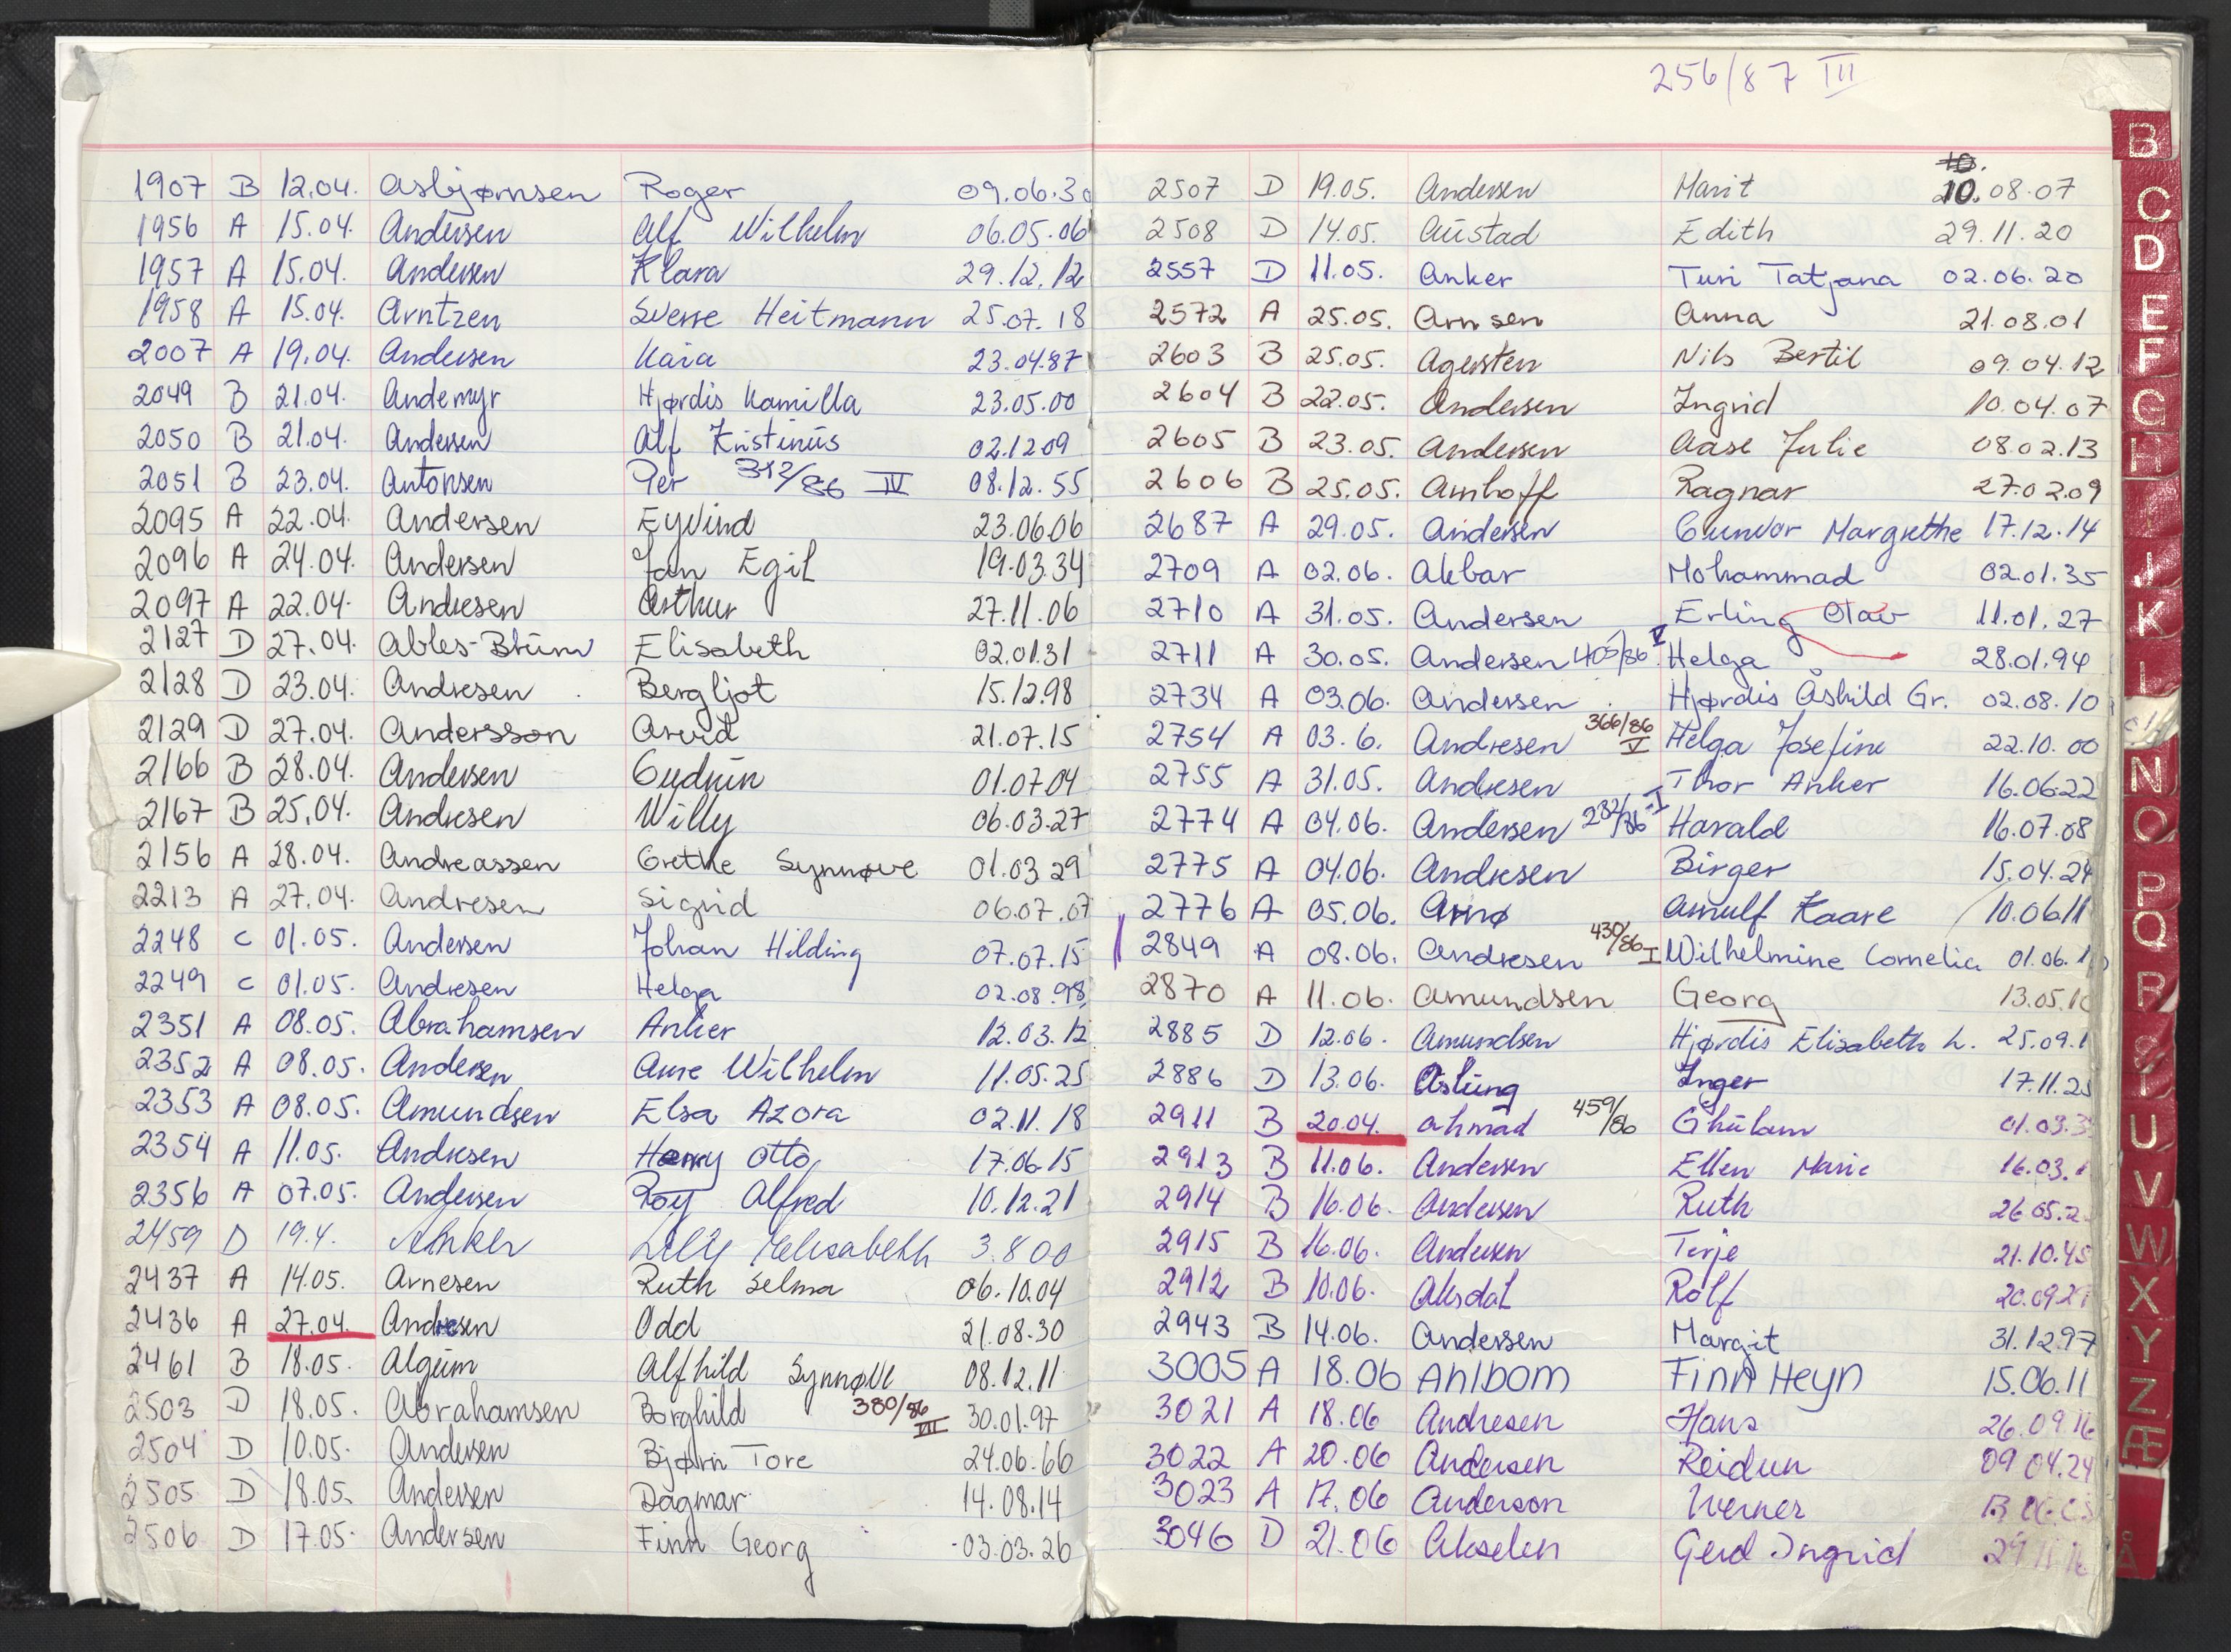 1907 B 12.04. Asbjørnsen Roger 09.06.30
1956 A 15.04. Andersen Alf Wilhelm 06.05.06
1957 A 15.04. Andersen Klara 29.12.12
1958 A 15.04. Arntzen Sverre Heitmann 25.07.18
2007 A 19.04. Andersen Kaia 23.04.87
2049 B 21.04. Andemyr Hjørdis Kamilla 23.05.00
2050 B 21.04. Andersen Alf Kristinus 02.12 09
2051 B 23.04. Antonsen Per 312/86 IV 08.12.55
2095 A 22.04. Andersen Eyvind 23.06 06
2096 A 24.04. Andersen Jan Egil 19.03.34
2097 A 22.04. Andresen Arthur 27.11.06
2127 D 27.04. Ables-Blum Elisabeth 02.01.31
2128 D 23.04. Andresen Bergljot 15.12.98
2129 D 27.04. Andersson Arvid 21.07.15
2166 B 28.04. Andersen Gudrun 01.07.04
2167 B 25.04. Andresen Willy 06.03.27
2156 A 28.04. Andreassen Grethe Synnøve 01.03 29
2213 A 27.04. Andresen Sigrid 06.07.07
2248 C 01.05. Andersen Johan Hilding 07.07.15
2249 C 01.05. Andresen Helga 02.08.98
2351 A 08.05. Abrahamsen Anker 12.03.12
2352 A 08.05. Andersen Arne Wilhelm 11.05.25
2353 A 08.05. Amundsen Elsa Azora 02.11.18
2354 A 11.05. Andresen Harry Otto 17.06.15
2356 A 07.05. Andersen Roy Alfred 10.12.21
2459 D 19.4. Anker Lilly Elisabeth 3.8 00
2437 A 14.05. Arnesen Ruth Selma 06.10.04
2436 A 27.04. Andresen Odd 21.08.30
2461 B 18.05. Algeim Alfhild Synnøve 08.12.11
2503 D 18.05. Abrahamsen Borghild 380/86 VII 30.01.97
2504 D 10.05. Andersen Bjørn Tore 24.06.66
2505 D 18.05. Andersen Dagmar 14.08.14
2506 D 17.05. Andersen Finn Georg 03.03.26
256/87 III
10.
2507 D 19.05. Andersen Marit 10.08.07
2508 D 14.05. Austad Edith 29.11.20
2557 D 11.05. Anker Turi Tatjana 02.06.20
2572 A 25.05. Arnsen Anna 21.08.01
2603 B 25.05. Agersten Nils Bertil 09.04.12
2604 B 22.05. Andersen Ingrid 10.04.07
2605 B 23.05. Andersen Aase Julie 08.02.13
2606 B 25.05. Amhoff Ragnar 27.02.09
2687 A 29.05. Andersen Gunvor Margrethe 17.12.14
2709 A 02.06. Akbar Mohammad 02.01.35
2710 A 31.05. Andersen Erling Olav 11.01.27
2711 A 30.05. Andersen 405/86 V Helga 28.01.94
2734 A 03.06. Andersen Hjørdis Åshild Gr. 02.08.10
2754 A 03.6. Andresen 366/86 V Helga Josefine 22.10.00
2755 A 31.05. Andresen Thor Anker 16.06.22
2774 A 04.06. Andersen 232/86 I Harald 16.07.08
2775 A 04.06. Andresen Birger 15.04.24
2776 A 05.06. Arnø Arnulf Kaare 10.06.11
2849 A 08.06. Andresen 430/86 I Wilhelmine Cornelia 01.06.1
2870 A 11.06. Amundsen Georg 13.05.1
2885 D 12.06. Amundsen Hjørdis Elisabeth L. 25.09.1
2886 D 13.06. Åslung Inger 17.11.25
2911 B 20.04. Ahmad 459/86 Ghulam 01.03.3
2913 B 11.06. Andersen Ellen Marie 16.03.
2914 B 16.06. Andersen Ruth 26.05.2
2915 B 16.06. Andersen Terje 21.10.45
2912 B 10.06. Aksdal Rolf 20.09.2
2943 B 14.06. Andersen Margit 31.12.97
3005 A 18.06 Ahlbom Finn Heyn 15.06.11
3021 A 18.06 Andresen Hans 26.09.16
3022 A 20.06 Andersen Reidun 09.04.24
3023 A 17.06 Anderson Werner
3046 D 21.06 Akselsen Gerd Ingrid
B
C
D
E
F
G
H
J
K
L
N
O
P
Q
R
S
U
V
W
X
Y
Z
Æ
Å